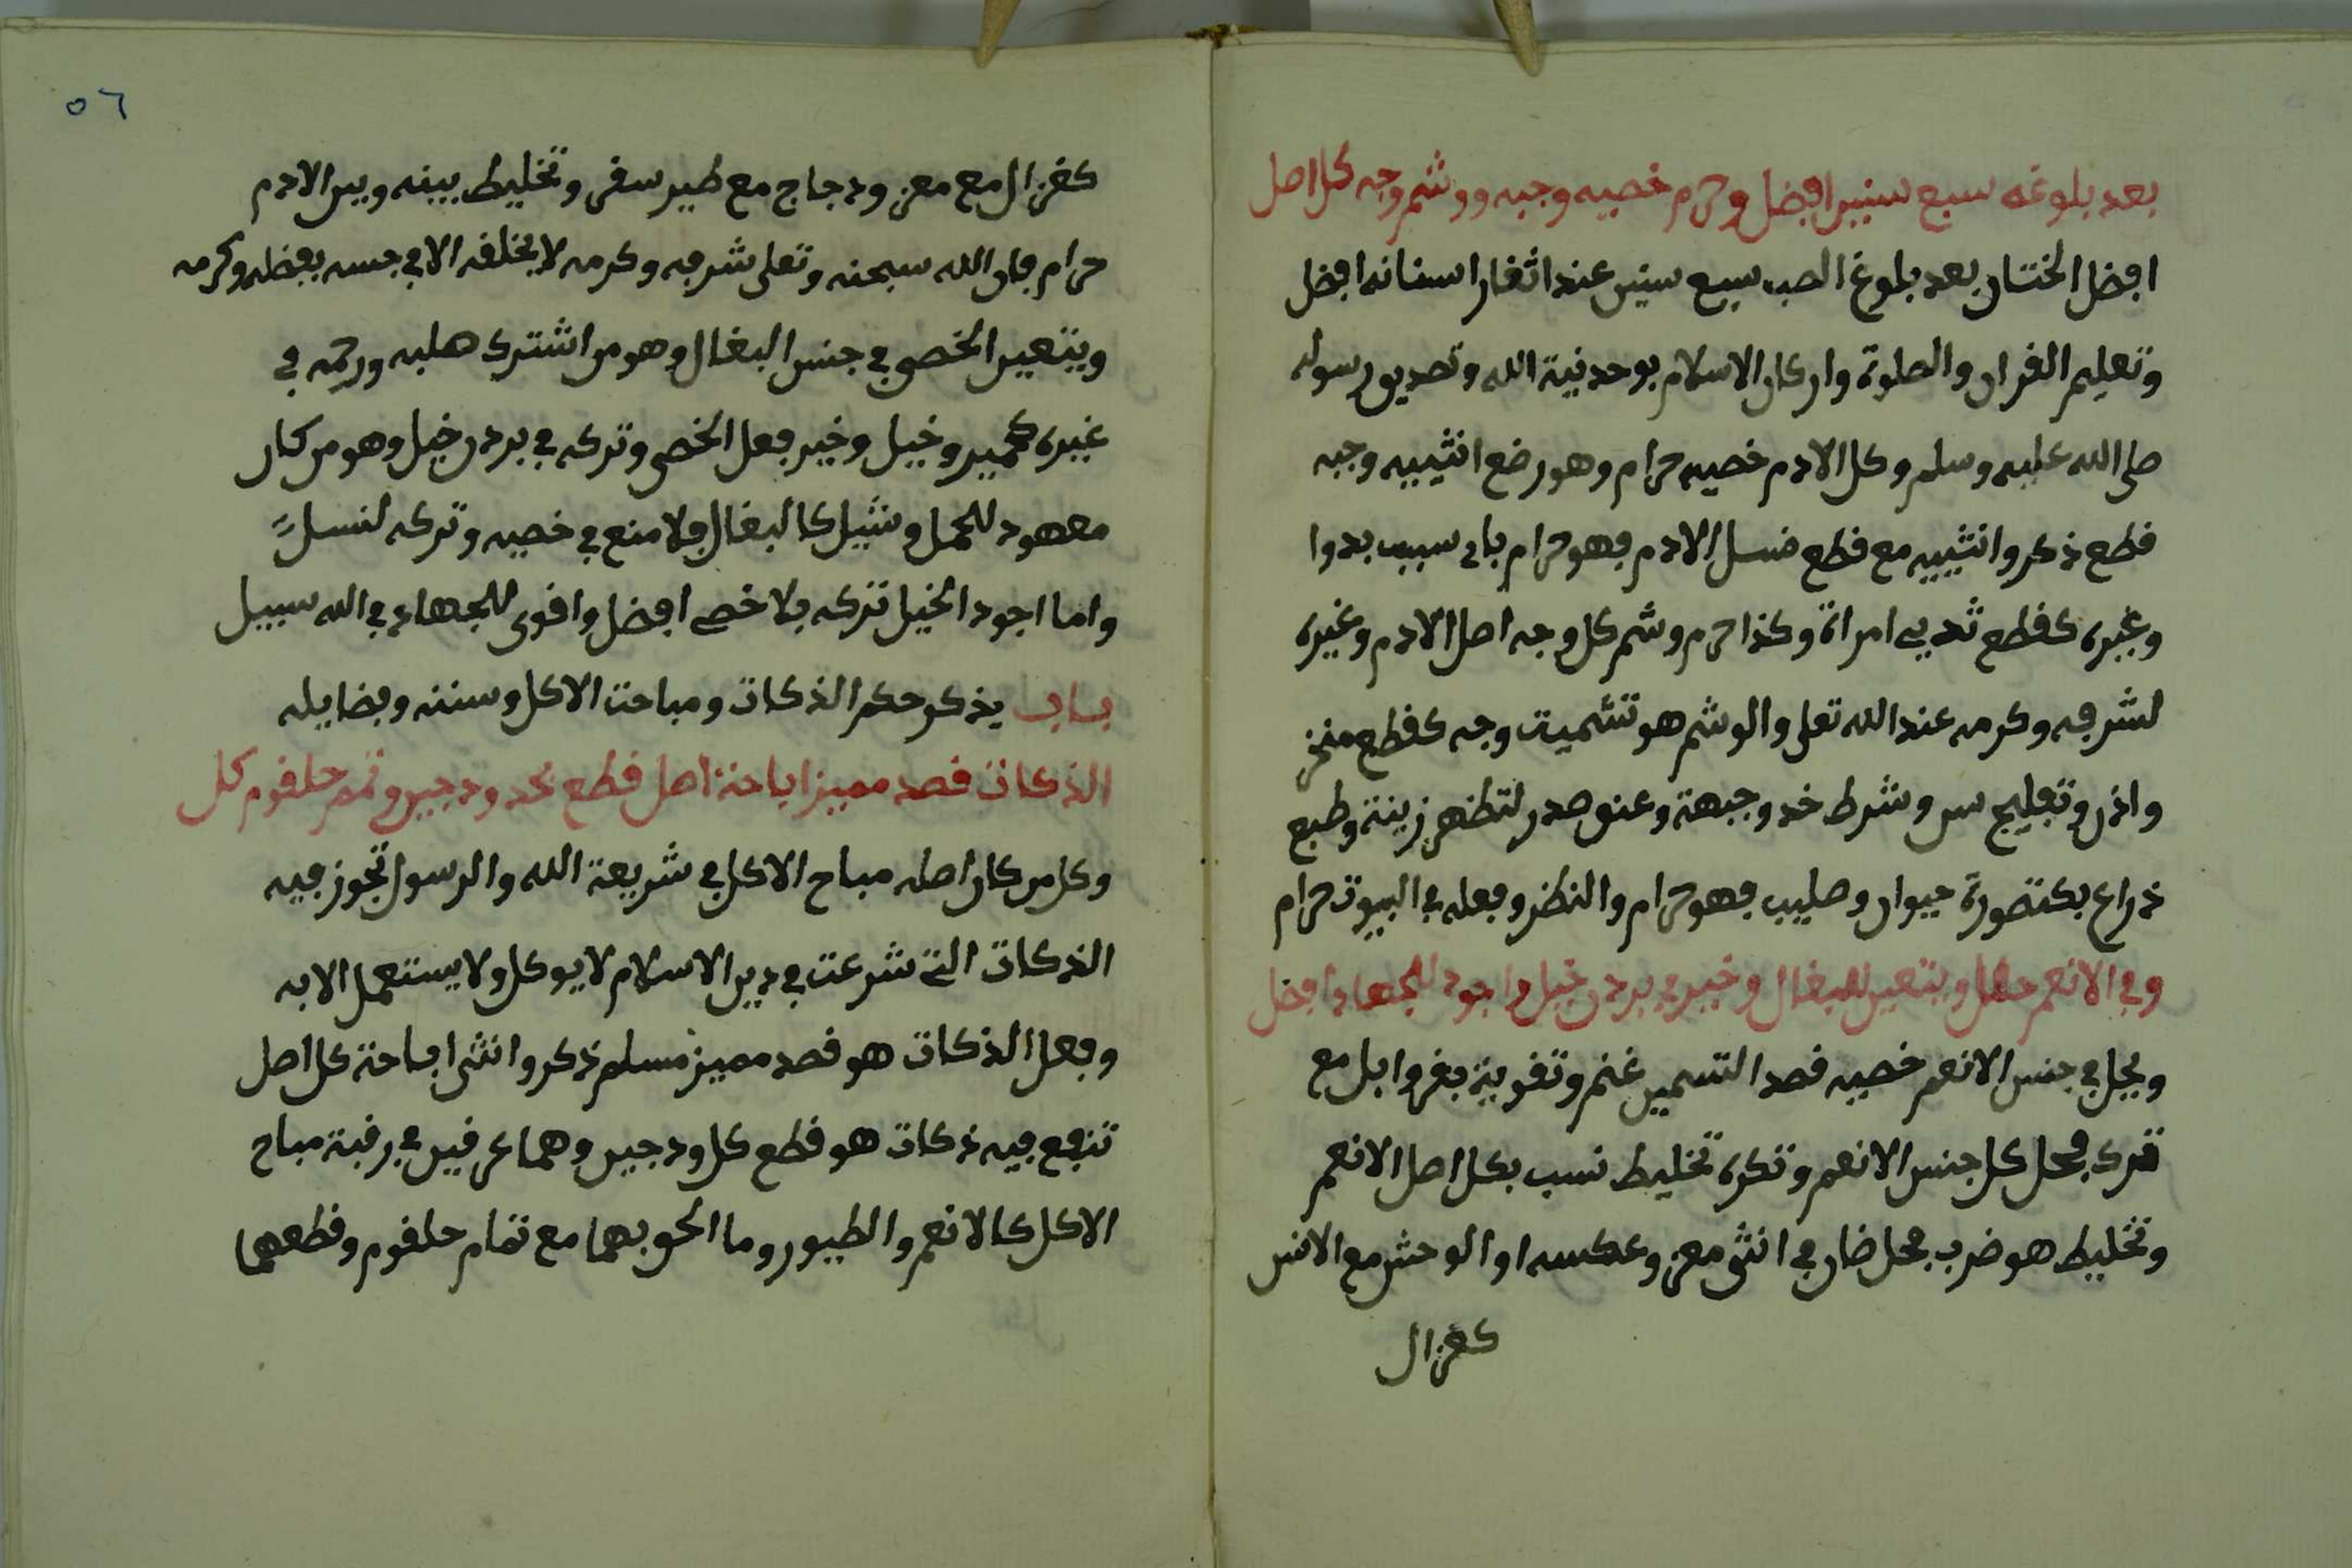 بعد بلوغه سبع سنين افضل وحرم خصيه وجبه ووشم وجه كل اصل
افضل الختان بعد بلوغ الصب سبع سنين عند اثغار اسنانه افضل
وتعليم القران والصلوة واركان الاسلام بوحدنية الله وتصديق رسوله
صلى الله عليه وسلم وكل الادم خصيه حرام وهو رضع انثييه وجبه
قطع ذكر وانثييه مع قطع نسل الادم فهو حرام باى سبب بدوا
وغيره كقطع ثديي امراة وكذا حرم وشم كل وجه اصل الادم وغيره
لشرفه وكرمه عند الله تعلى والوشم هو تشميت وجه كقطع منخر
واذن وتفليج سن وشرط خد وجبهة وعنق صدر لتظهر زينة وطبع
ذراع بكتصورة حيوان وصليب فهو حرام والنظر وفعله في البيوت حرام
وفي الانعم حلها ويتعين للبغال وخير في بردن خيل واجود للجهاد افضل
ويحل في جنس الانعم خصيه قصد التسمين غنم وتقوية بقر وابل مع
ترك فحل كل جنس الانعم وتكره تخليط نسب بكل اصل الانعم
وتخليط هو ضرب فحل ضان في انثى معز وعكسه او الوحش مع الانس
كغزال
٥٦
كغزال مع معز ودجاج مع طير سقى وتخليط بينه وبين الادم
حرام فان الله سبحنه وتعلى شرفه وكرمه لا يخلفه الا في جنسه بفضله وكرمه
ويتعين الخصي في جنس البغال وهو من اشترك صلبه ورحمه في
غيره كحمير وخيل وخير فعل الخصى وتركه في بردن خيل وهو من كان
معهود للحمل وشيل كالبغال فلا منع في خصيه وتركه لنسل
واما اجود الخيل تركه بلا خصى افضل واقوى للجهاد في الله سبيل
باب يذكر حكم الذكات ومباحت الاكل وسننه وفضايله
الذكات قصد مميز اباحة اصل قطع بحد ودجين وتم حلقوم كل
وكل من كان اصله مباح الاكل في شريعة الله والرسول تجوز فيه
الذكات التى شرعت في دين الاسلام لا يوكل ولا يستعمل الا به
وفعل الذكات هو قصد مميز مسلم ذكر وانثى اباحة كل اصل
تنفع فيه ذكات هو قطع كل ودجين وهما عرقين في رقبة مباح
الاكل كالانعم والطيور وما الحق بهما مع تمام حلقوم وقطعهما